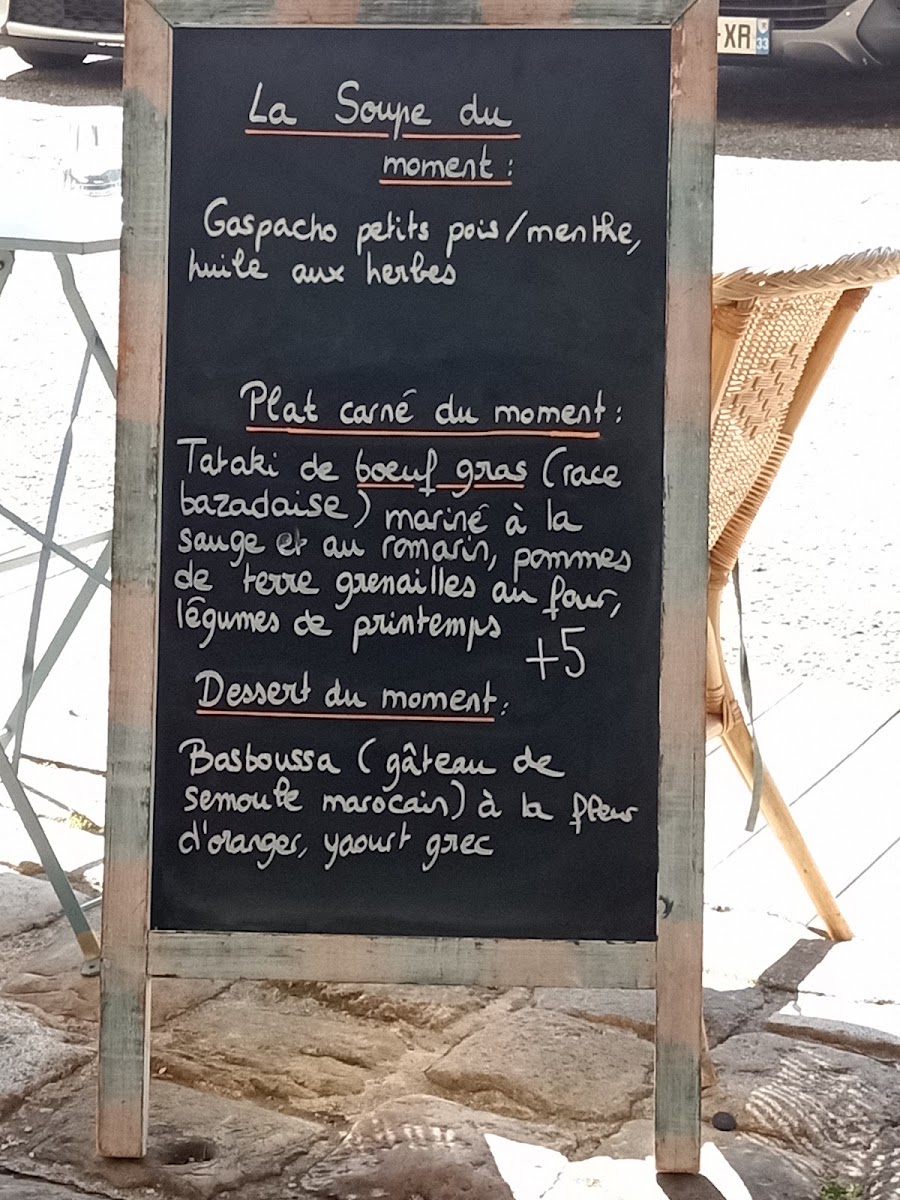 XR
33
La Soupe du
moment :
Gaspacho petits pois/menthe,
huile aux herbes
Plat carné du moment :
Tataki de boeuf gras (race
bazadaise) mariné à la
sauge et au romarin, pommes
de terre grenailles au four,
légumes de printemps
+5
Dessert du moment :
Basboussa (gâteau de
semoule marocain) à la fleur
d'oranger, yaourt grec